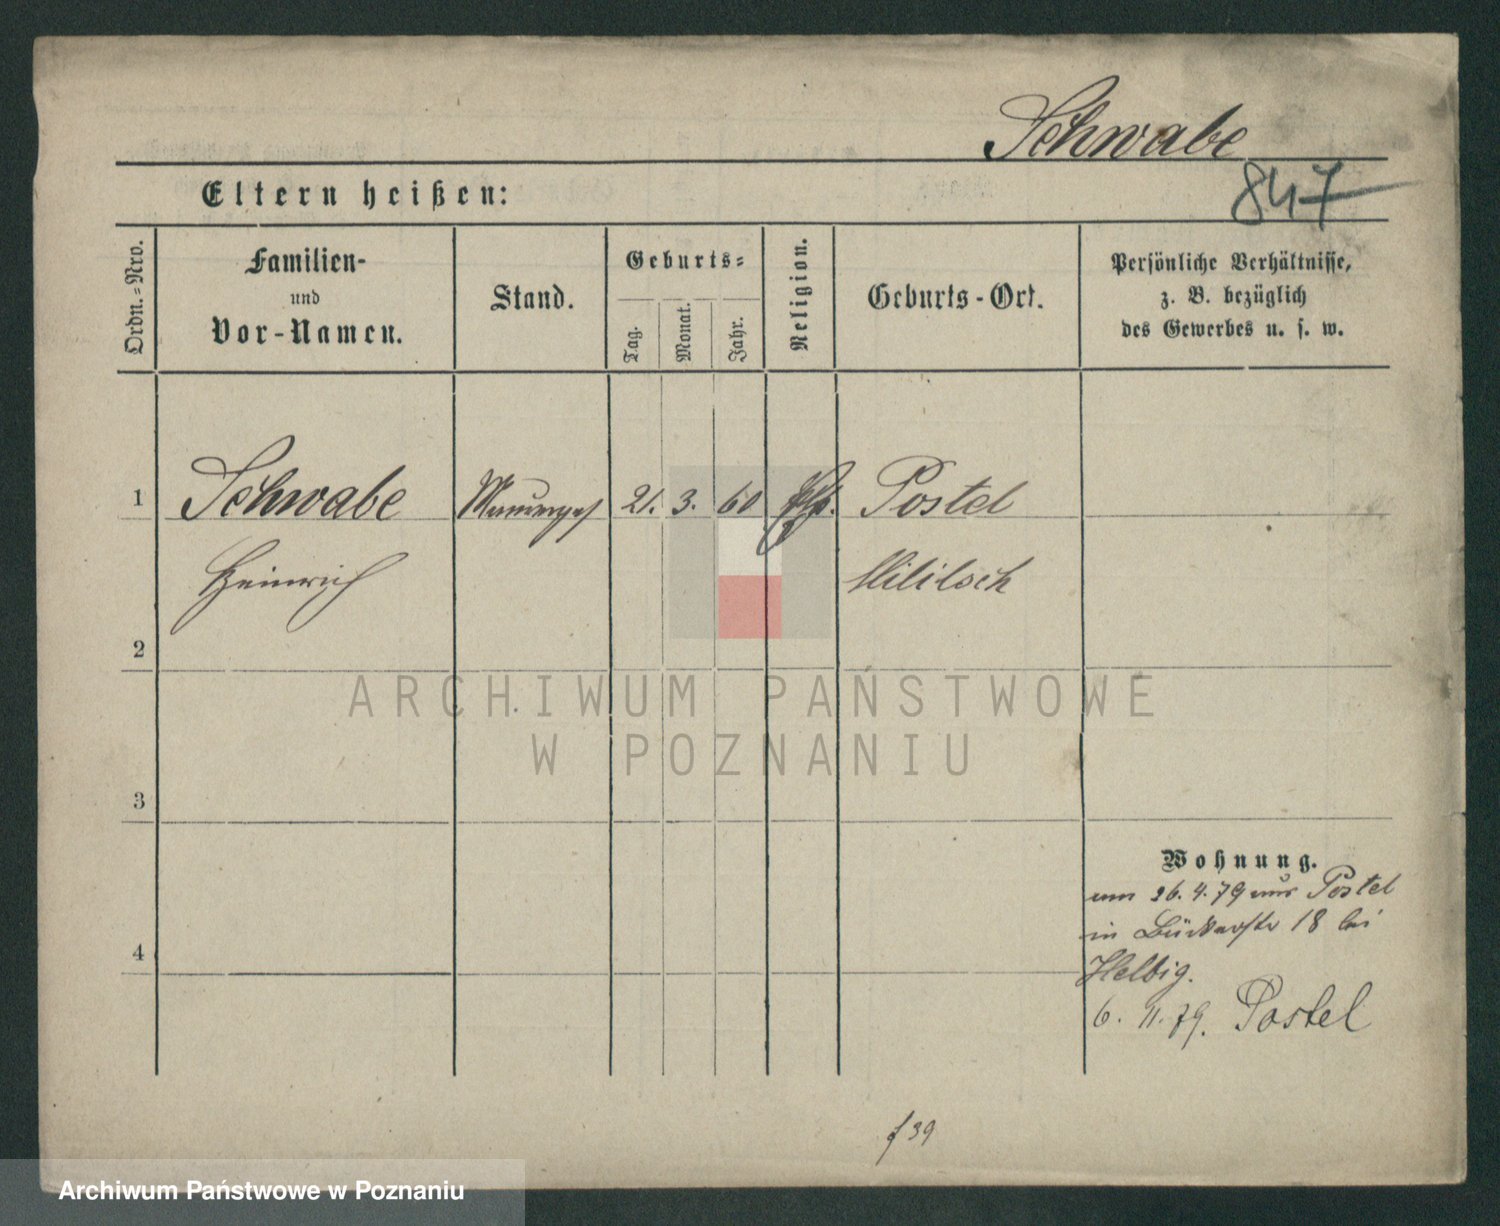 Schwabe
847
Eltern heißen:
Ordn.-Nro.
Familien-
und
Vor-Namen.
Stand.
Geburts-
Tag.
Monat.
Jahr.
Religion.
Geburts-Ort.
Persönliche Verhältnisse,
z. B. bezüglich
des Gewerbes u. s. w.
1 Schwabe 21. 3. 60 Postel
Heinrich Militsch
2
ARCHIWUM PAŃSTWOWE
W POZNANIU
3
Wohnung.
26. 4. 79 aus Postel
in 18 bei
4
Helbig.
6. 11. 79. Postel
f 39
Archiwum Państwowe w Poznaniu